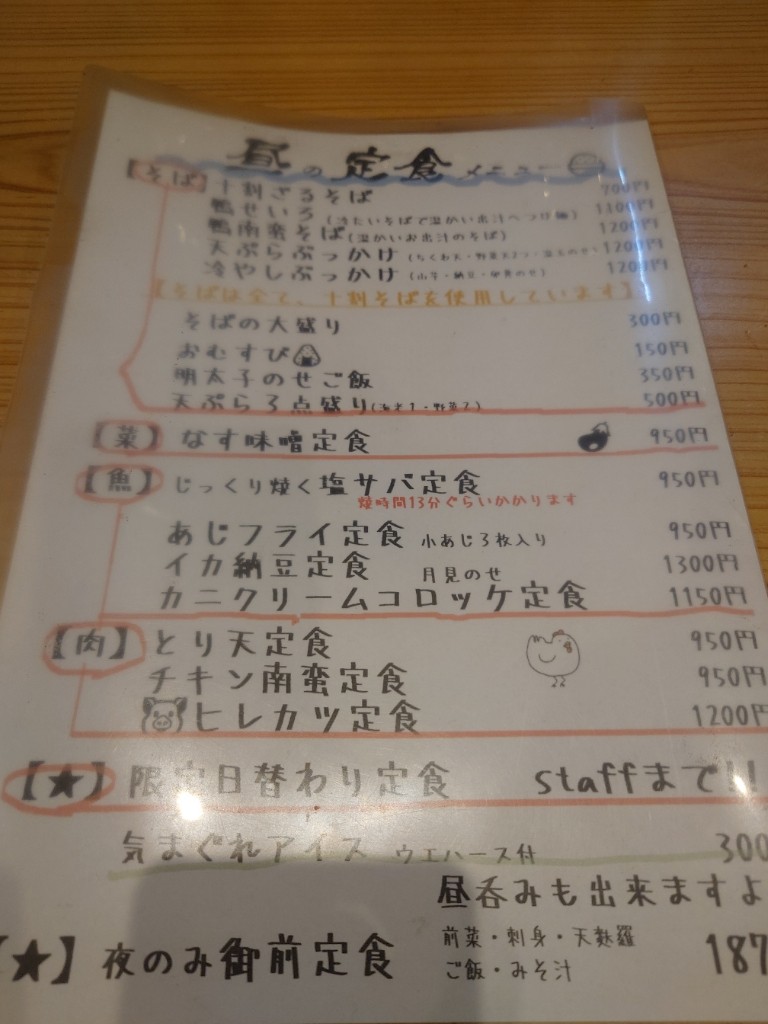 昼の定食メニュー
【そば】十割ざるそば 700円
鴨せいろ(冷たいそばで温かい出汁へつけ麺) 1300円
鴨南蛮そば(温かいお出汁のそば) 1200円
天ぷらぶっかけ 1200円
冷やしぶっかけ 1200円
【そばは全て、十割そばを使用しています】
そばの大盛り 300円
おむすび 150円
明太子のせご飯 350円
天ぷら3点盛り 500円
【菜】なす味噌定食 950円
【魚】じっくり焼く塩サバ定食 950円
焼時間13分ぐらいかかります
あじフライ定食 小あじ3枚入り 950円
イカ納豆定食 月見のせ 1300円
カニクリームコロッケ定食 1150円
【肉】とり天定食 950円
チキン南蛮定食 950円
ヒレカツ定食 1200円
【★】限定日替わり定食 staffまで!!
気まぐれアイス ウエハース付 300
昼呑みも出来ますよ
【★】夜のみ御前定食 前菜・刺身・天麩羅 187
ご飯・みそ汁